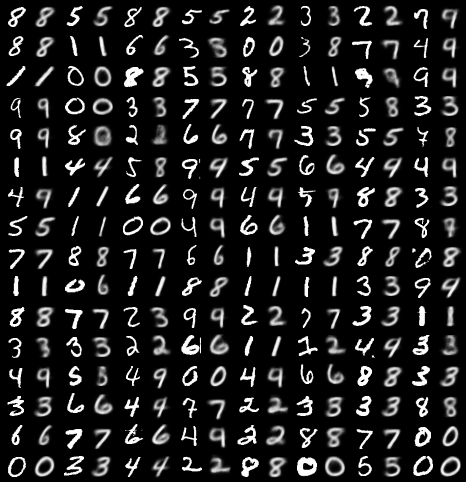 8 8 5 5 8 8 5 5 2 2 3 3 2 2 7 9
8 8 1 1 6 6 3 8 0 0 3 8 7 7 4 9
1 1 0 0 8 8 5 5 8 8 1 1 9 9 9
9 9 0 0 3 3 7 7 7 7 5 5 5 8 3 3
9 9 8 0 2 6 6 7 7 3 3 5 5 7 8
1 1 4 4 5 8 9 9 5 5 6 6 4 9 4 9
4 9 1 1 6 6 9 9 4 9 5 9 8 8 3 3
5 5 1 1 0 0 4 9 6 6 1 1 7 7 8
7 7 8 8 7 7 6 6 1 1 3 3 8 8 0 8
1 1 0 6 1 1 8 8 1 1 1 1 3 3 9 9
8 8 7 7 2 3 9 9 2 2 7 7 3 3 1 1
3 3 3 3 2 2 6 6 1 1 2 2 4 9 3 3
4 9 5 8 4 9 0 0 4 9 6 6 8 8 3 3
3 3 6 6 4 4 7 7 2 2 3 3 3 3 8 8
6 6 7 7 6 6 4 9 2 2 8 8 7 7 0 0
0 0 3 3 4 4 2 2 8 8 0 0 5 5 0 0